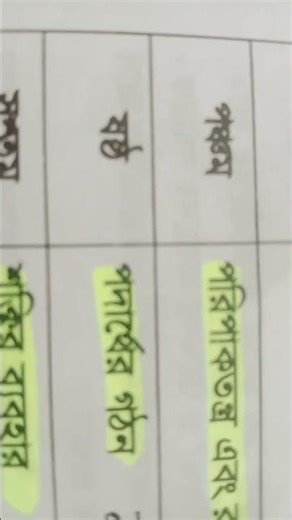 পঞ্চম পরিপাকতন্ত্র এবং
ষষ্ঠ পদার্থের গঠন
সপ্তম শক্তির ব্যবহার